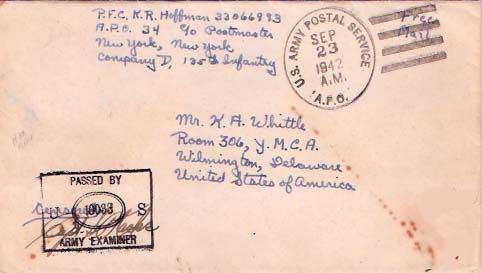 P.F.C. K.R. Hoffman 33066993
A.P.O. 34 c/o Postmaster
New York, New York
Company D, 135th Infantry
U.S. ARMY POSTAL SERVICE
SEP
23
1942
A.M.
A.P.O.
Free
Mail
Mr. K. A. Whittle
Room 306, Y.M.C.A.
Wilmington, Delaware
United States of America
PASSED BY
U S
ARMY EXAMINER